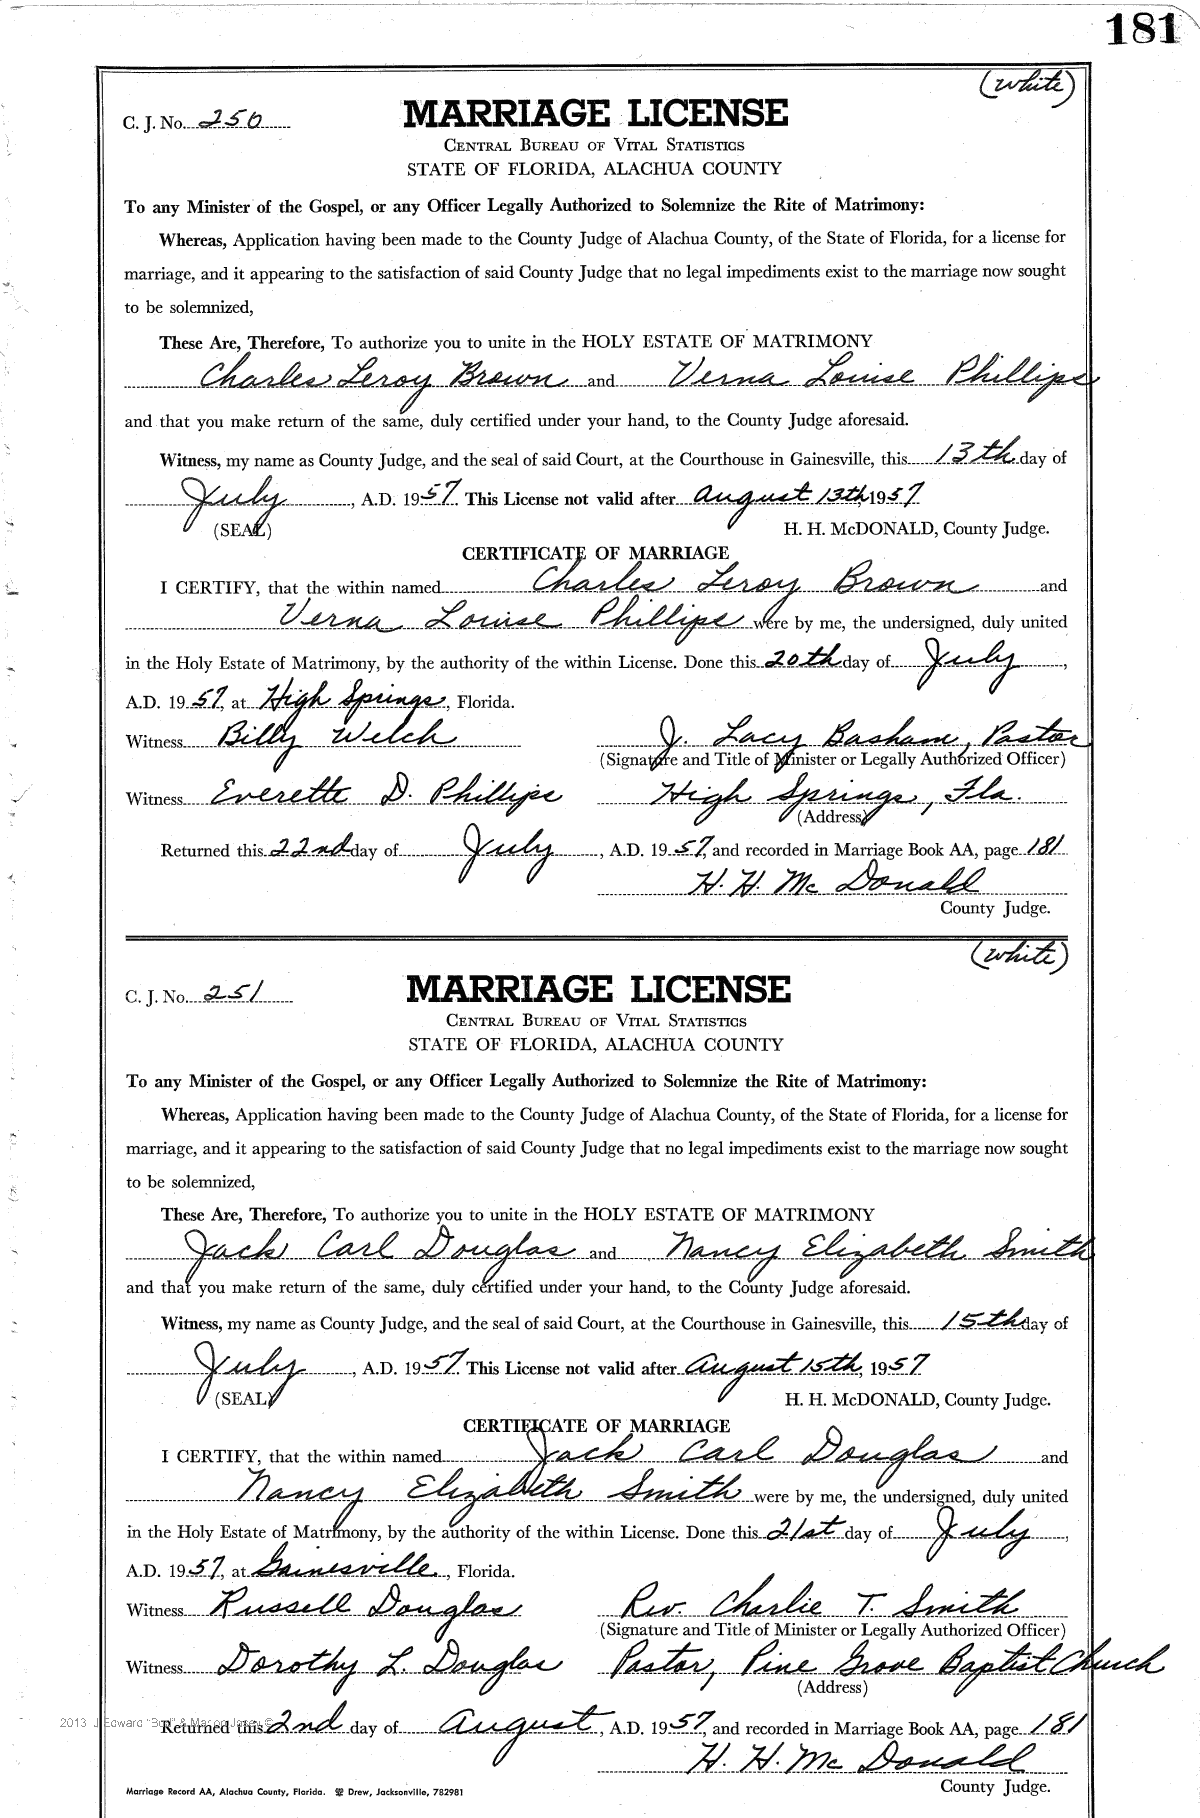 181
(white)
C. J. No. 250
MARRIAGE LICENSE
CENTRAL BUREAU OF VITAL STATISTICS
STATE OF FLORIDA, ALACHUA COUNTY
To any Minister of the Gospel, or any Officer Legally Authorized to Solemnize the Rite of Matrimony:
Whereas, Application having been made to the County Judge of Alachua County, of the State of Florida, for a license for
marriage, and it appearing to the satisfaction of said County Judge that no legal impediments exist to the marriage now sought
to be solemnized,
These Are, Therefore, To authorize you to unite in the HOLY ESTATE OF MATRIMONY
Charles Leroy Brown and Verna Louise Phillips
and that you make return of the same, duly certified under your hand, to the County Judge aforesaid.
Witness, my name as County Judge, and the seal of said Court, at the Courthouse in Gainesville, this 13th day of
July, A.D. 1957. This License not valid after August 13th, 1957
(SEAL) H. H. McDONALD, County Judge.
CERTIFICATE OF MARRIAGE
I CERTIFY, that the within named Charles Leroy Brown and
Verna Louise Phillips were by me, the undersigned, duly united
in the Holy Estate of Matrimony, by the authority of the within License. Done this 20th day of July,
A.D. 1957, at High Springs, Florida.
Witness Billy Welch J. Lacy Basham, Pastor
(Signature and Title of Minister or Legally Authorized Officer)
Witness Everette D. Phillips High Springs, Fla.
(Address)
Returned this 22nd day of July, A.D. 1957, and recorded in Marriage Book AA, page 181
H. H. McDonald
County Judge.
(white)
C. J. No. 251
MARRIAGE LICENSE
CENTRAL BUREAU OF VITAL STATISTICS
STATE OF FLORIDA, ALACHUA COUNTY
To any Minister of the Gospel, or any Officer Legally Authorized to Solemnize the Rite of Matrimony:
Whereas, Application having been made to the County Judge of Alachua County, of the State of Florida, for a license for
marriage, and it appearing to the satisfaction of said County Judge that no legal impediments exist to the marriage now sought
to be solemnized,
These Are, Therefore, To authorize you to unite in the HOLY ESTATE OF MATRIMONY
Jack Carl Douglas and Nancy Elizabeth Smith
and that you make return of the same, duly certified under your hand, to the County Judge aforesaid.
Witness, my name as County Judge, and the seal of said Court, at the Courthouse in Gainesville, this 15th day of
July, A.D. 1957. This License not valid after August 15th, 1957
(SEAL) H. H. McDONALD, County Judge.
CERTIFICATE OF MARRIAGE
I CERTIFY, that the within named Jack Carl Douglas and
Nancy Elizabeth Smith were by me, the undersigned, duly united
in the Holy Estate of Matrimony, by the authority of the within License. Done this 21st day of July,
A.D. 1957, at Gainesville, Florida.
Witness Russell Douglas Rev. Charlie T. Smith
(Signature and Title of Minister or Legally Authorized Officer)
Witness Dorothy L. Douglas Pastor, Pine Grove Baptist Church
(Address)
2013 J Edward
Returned this 2nd day of August, A.D. 1957, and recorded in Marriage Book AA, page 181
H. H. McDonald
County Judge.
Marriage Record AA, Alachua County, Florida. Drew, Jacksonville, 782981